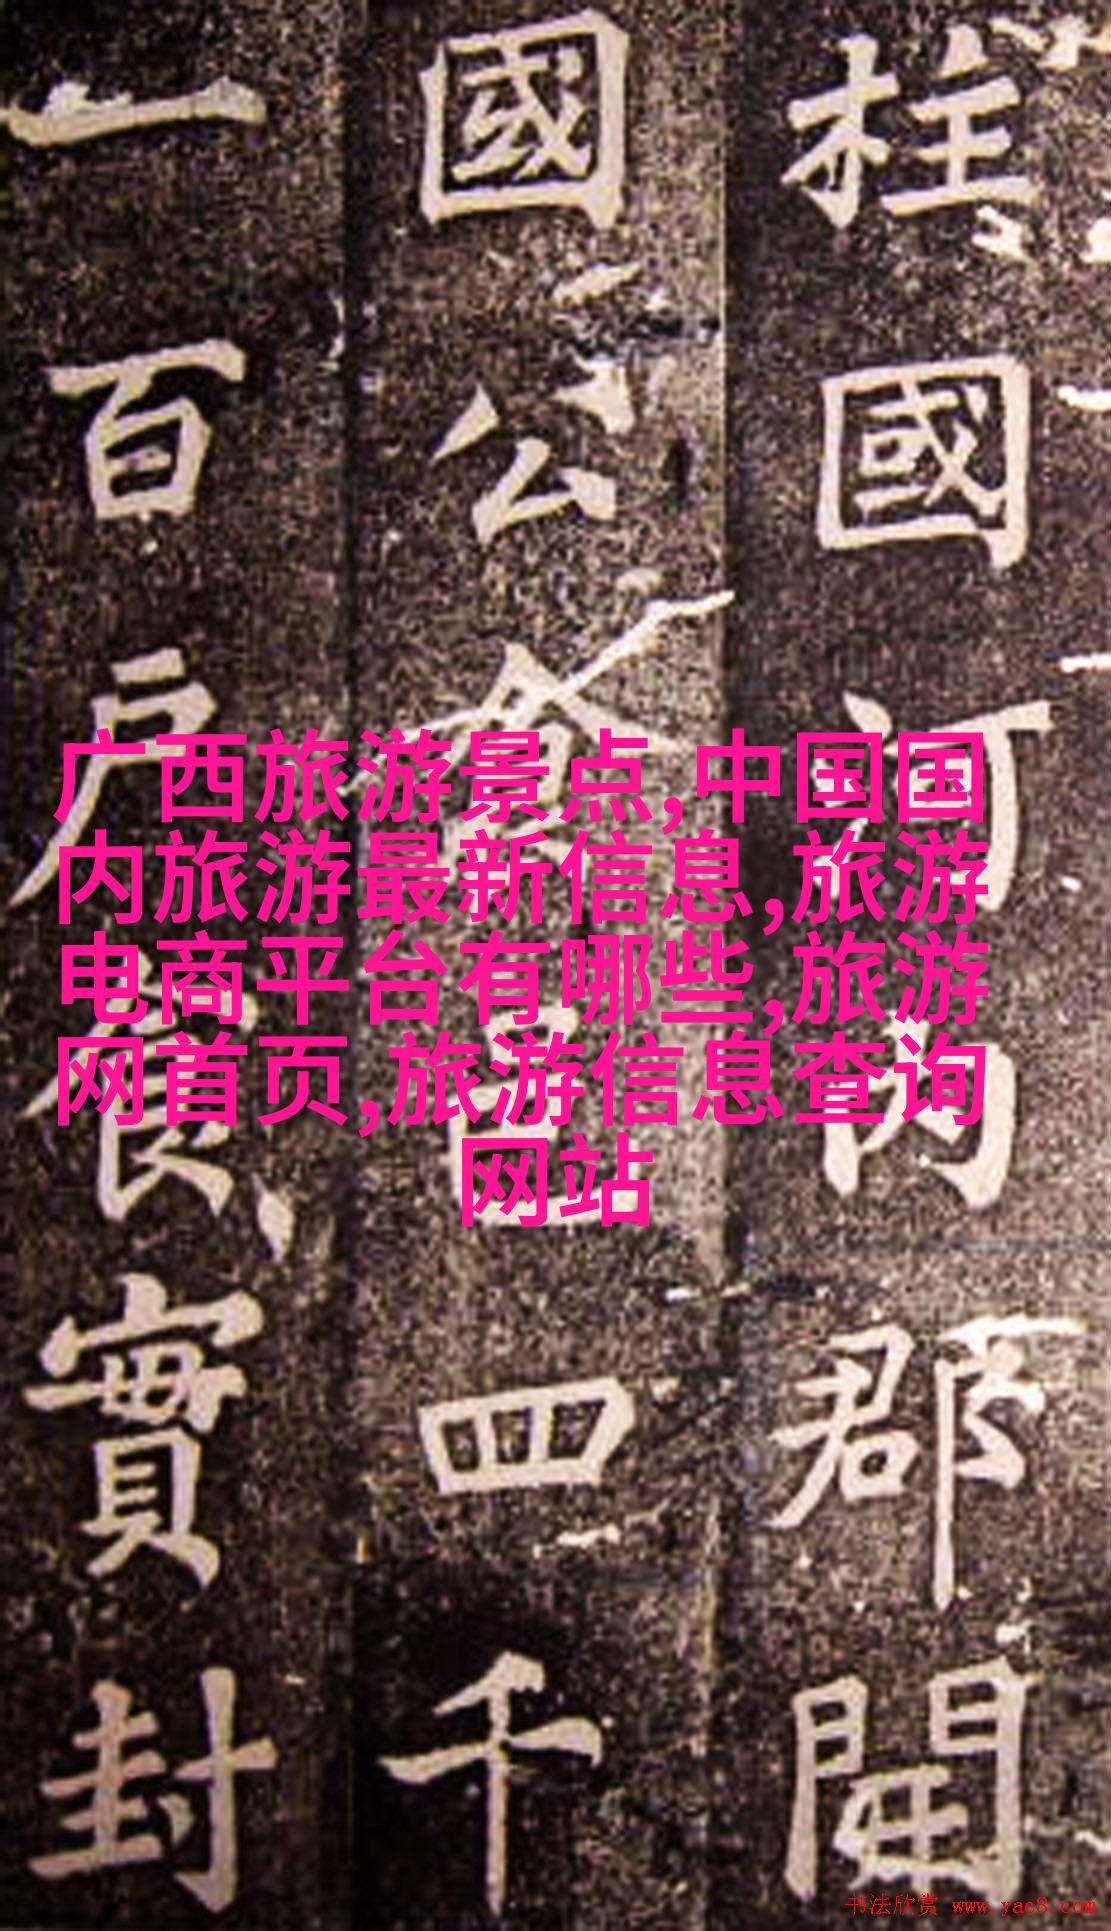 柱國河内郡開
國公食邑四千
一百户食實封
广西旅游景点,中国国
内旅游最新信息,旅游
电商平台有哪些,旅游
网首页,旅游信息查询
网站
书法欣赏 www.yac8.com